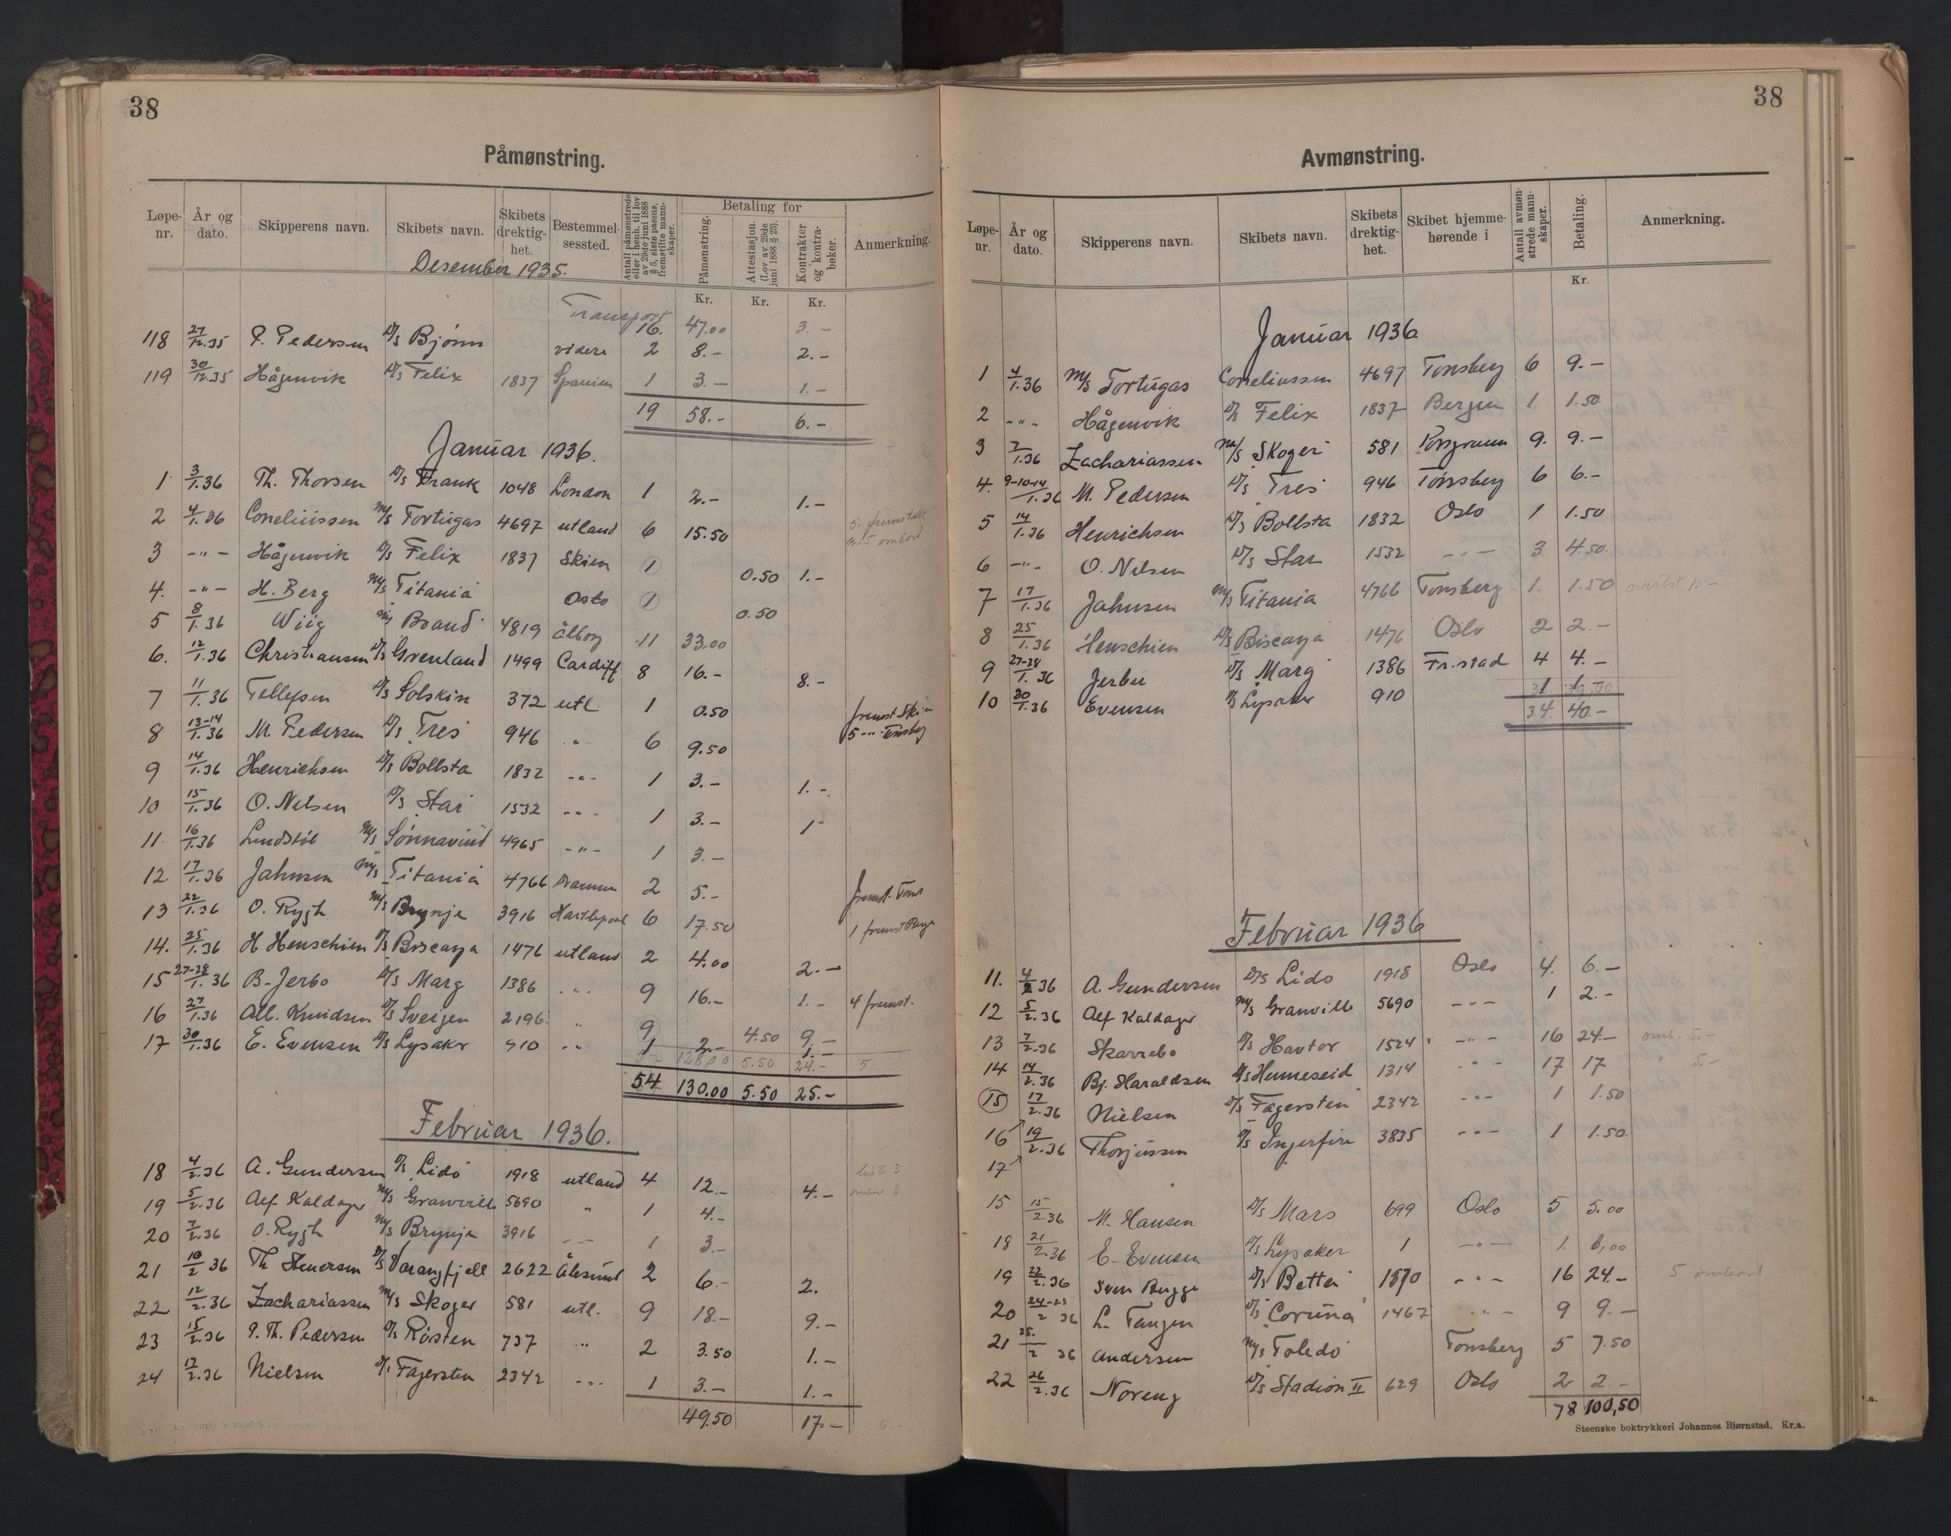 38
Påmønstring.
Løpe-nr. År og dato. Skipperens navn. Skibets navn. Skibets drektig-het. Bestemmel-sessted. Antall påmønstrede eller i henh. til lov av 29de juni 1888 § 5, siste passus, fremstilte mann-skaper. Betaling for Påmønstring. Attestasjon. (Lov av 29de juni 1888 § 23). Kontrakter og kontra-bøker. Anmerkning.
Desember 1935.
Kr. Kr. Kr.
Transport 16. 47.00 3.-
118 27/12.35 P. Pedersen D/s Bjønn videre 2 8.- 2.-
119 30/12.35 Hågenvik D/s Felix 1837 Spanien 1 3.- 1.-
19 58.- 6.-
Januar 1936.
1 3/1.36 Th. Thorsen D/s Frank 1048 London 1 2.- 1.-
2 4/1.36 Corneliussen M/s Tortugas 4697 utland 6 15.50
3 -"- Hågenvik D/s Felix 1837 Skien 1 0.50 1.-
4. -"- H. Berg M/s Titania Oslo 1 0.50
5 8/1.36 Wiig M/s Brand 4819 Ålborg 11 33.00
6. 12/1.36 Christiansen D/s Grenland 1499 Cardiff 8 16.- 8.-
7 11/1.36 Tellefsen D/s Solskin 372 utl 1 0.50 fremst Skien
8 13-14/1.36 M. Pedersen D/s Tres 946 " 6 9.50 5 -"- Tønsberg
9 14/1.36 Henrichsen D/s Bollsta 1832 -"- 1 3.- 1.-
10 15/1.36 O. Nilsen D/s Star 1532 -"- 1 3.- 1-
11. 16/1.36 M/s Sønnavind 4965 -"- 1 3.-
12 17/1.36 Jahnsen M/s Titania 4766 2 5.- fremst. Tønsb
13 22/1.36 O. Rygh M/s Brynje 3916 Hartlepool 6 17.50 1 fremst Berg
14. 25/1.36 H Henschien D/s Biscaya 1476 utland 2 4.00 2.-
15 27-28/1.36 B. Jerbo D/s Marg 1386 " 9 16.- 1.- 4 fremst.
16 27/1.36 Alb. Knudsen D/s Sveigen 2196 " 9 4.50 9.-
17 30/1.36 E. Evensen D/s Lysaker 910 " 1 2.- 1.-
128.00 5.50 24.- 5
54 130.00 5.50 25.-
Februar 1936.
18 4/2.36 A. Gundersen D/s Lido 1918 utland 4 12.- 4.-
19 5/2.36 Alf Kaldager M/s Granville 5690 " 1 4.-
20 7/2.36 O. Rygh M/s Brynje 3916 -"- 1 3.-
21 10/2 36 D/s Varangfjell 2622 Ålesund 2 6.- 2.
22 12/2.36 Zachariassen M/s Skoger 581 utl. 9 18.- 9.-
23 15/2.36 P. Th. Pedersen D/s Røsten 737 " 2 3.50 1.-
24 17/2.36 Nielsen D/s Fagersten 2342 -"- 1 3.- 1.-
49.50 17.-
38
Avmønstring.
Løpe-nr. År og dato. Skipperens navn. Skibets navn. Skibets drektig-het. Skibet hjemme-hørende i Antall avmøn-strede mann-skaper. Betaling. Anmerkning.
Kr.
Januar 1936
1 4/1.36 M/s Tortugas Corneliussen 4697 Tønsberg 6 9.-
2 -"- Hågenvik D/s Felix 1837 Bergen 1 1.50
3 7/1.36 Zachariassen M/s Skoger 581 Porsgrunn 9. 9.-
4. 9-10-14/1.36 M. Pedersen D/s Tres 946 Tønsberg 6 6.-
5 14/1.36 Henrichsen D/s Bollsta 1832 Oslo 1 1.50
6 -"- O. Nilsen D/s Star 1532 -"- 3 4.50
7 17/1.36 Jahnsen M/s Titania 4766 Tønsberg 1. 1.50
8 25/1.36 Henschien D/s Biscaya 1476 Oslo 2 2.-
9 27-28/1.36 Jerbu D/s Marg 1386 Fr.stad 4 4.-
10 30/1.36 Evensen D/s Lysaker 910
34. 40.-
Februar 1936
11. 4/2 36 A. Gundersen D/s Lido 1918 Oslo 4. 6.-
12 5/2.36 Alf Kaldager M/s Granville 5690 -"- 1 2.-
13 7/2.36 Skarrebo D/s Havtor 1524 -"- 16 24.- omb. 5.-
14 14/2.36 Bj. Haraldsen D/s Henneseid 1314 -"- 17 17 5.-
15 17/2.36 Nielsen D/s Fagersten 2342 -"- 1 1.50
16 19/2.36 Thorjussen D/s Ingerfire 3835 -"- 1 1.50
17
15 15/2.36 M. Hansen D/s Mars 699 Oslo 5 5.00
18 21/2.36 E. Evensen D/s Lysaker 1 -"- 1. 6,00
19 22/2.36 Sven Bugge D/s Betten 1570 -"- 16 24.- 5 ombord
20 24-25/2 36 L. Tangen D/s Coruna 1467 -"- 9 9.-
21 25./2 36 Andersen M/s Toledo Tønsberg 5 7.50
22 26/2.36 Noreng D/s Stadion II 629 Oslo 2 2.-
78 100,50
Steenske boktrykkeri Johannes Bjørnstad. Kr.a.